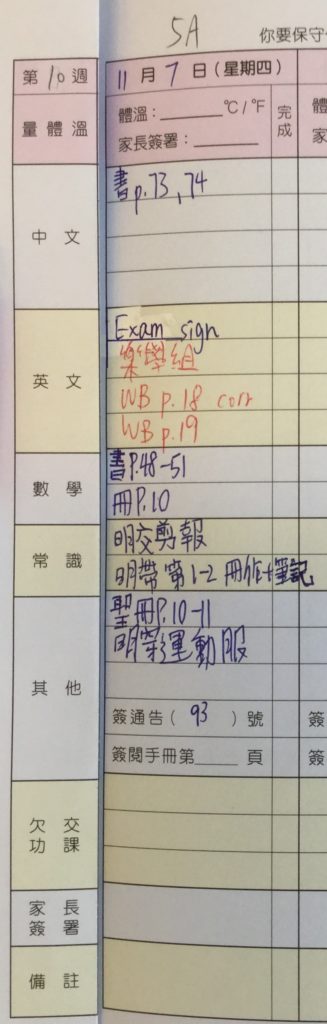 5A
你要保守
第10週
11月7日(星期四)
量體溫
體溫:______°C/°F
家長簽署:______
完成
體
家
中文
書p.73,74
英文
Exam sign
樂學組
WB p.18 corr
WB p.19
數學
書P.48-51
冊P.10
常識
明交剪報
明帶第1-2冊作+筆記
其他
聖冊P.10-11
明穿運動服
簽通告(93)號
簽
簽閱手冊第______頁
簽
欠交功課
家長簽署
備註